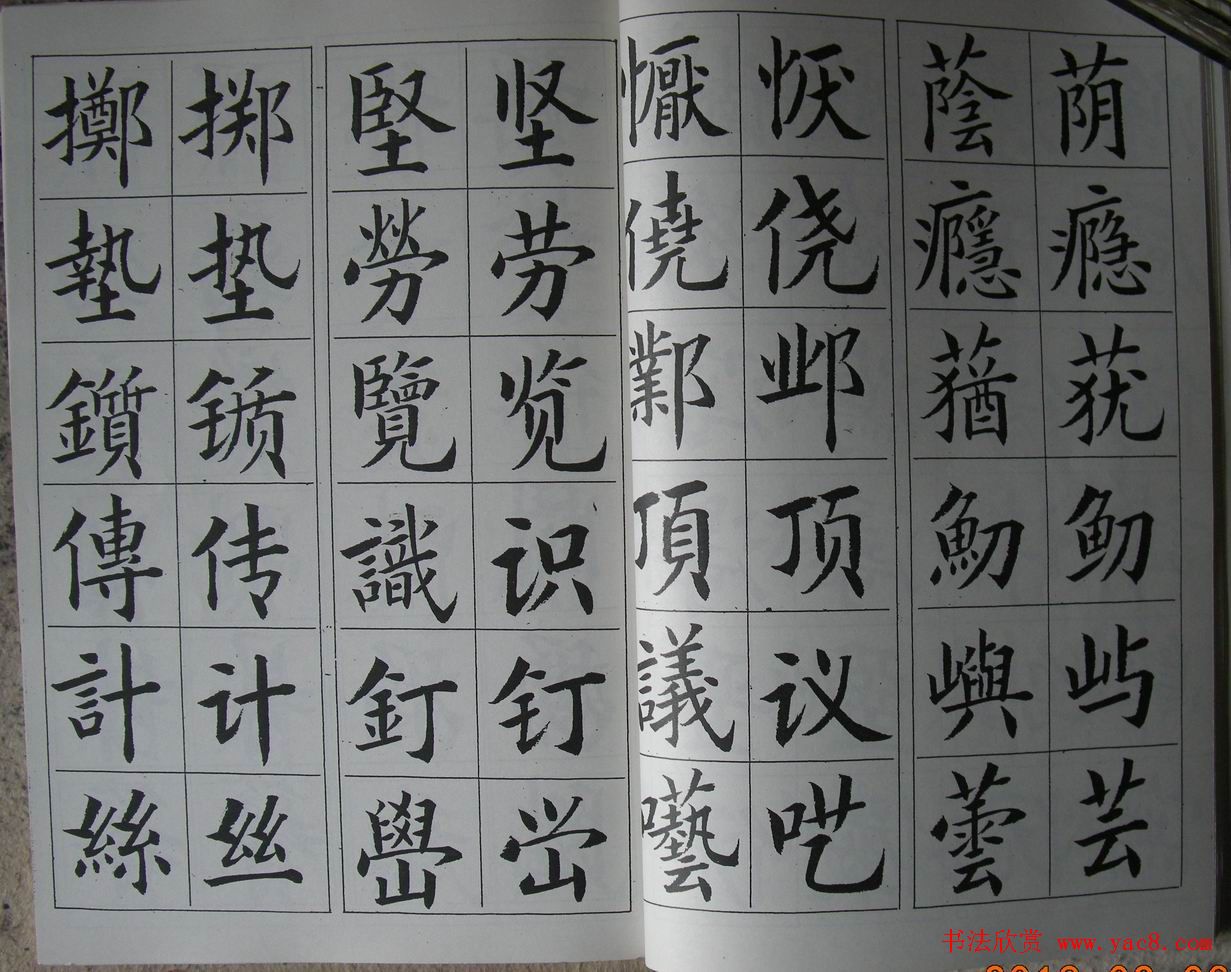 擲 掷 堅 坚 懨 恹 蔭 荫
墊 垫 勞 劳 僥 侥 癮 瘾
鑕 锧 覽 览 鄴 邺 蕕 莸
傳 传 識 识 頂 顶
計 计 釘 钉 議 议 嶼 屿
絲 丝 嶨 峃 囈 呓 蕓 芸
书法欣赏 www.yac8.com